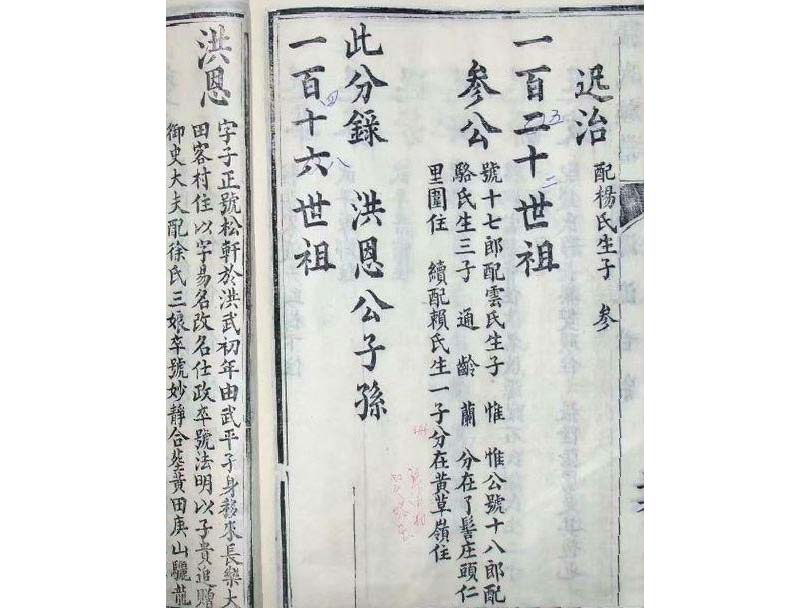 迟治
配楊氏生子　參
一百二十世祖
五
二
參公
號十七郎配雲氏生子　惟　惟公號十八郎配
駱氏生三子　通　齡　蘭　分在了髻庄頭仁
里圍住　續配賴氏生一子分在黃草嶺住
此分錄　洪恩公子孫
一百十六世祖
四
八
洪恩
字子正號松軒於洪武初年由武平子身移來長樂大
田客村住以字易名改名仕政卒號法明以子貴追贈
御史大夫配徐氏三娘卒號妙靜合塟黃田庚山驪龍